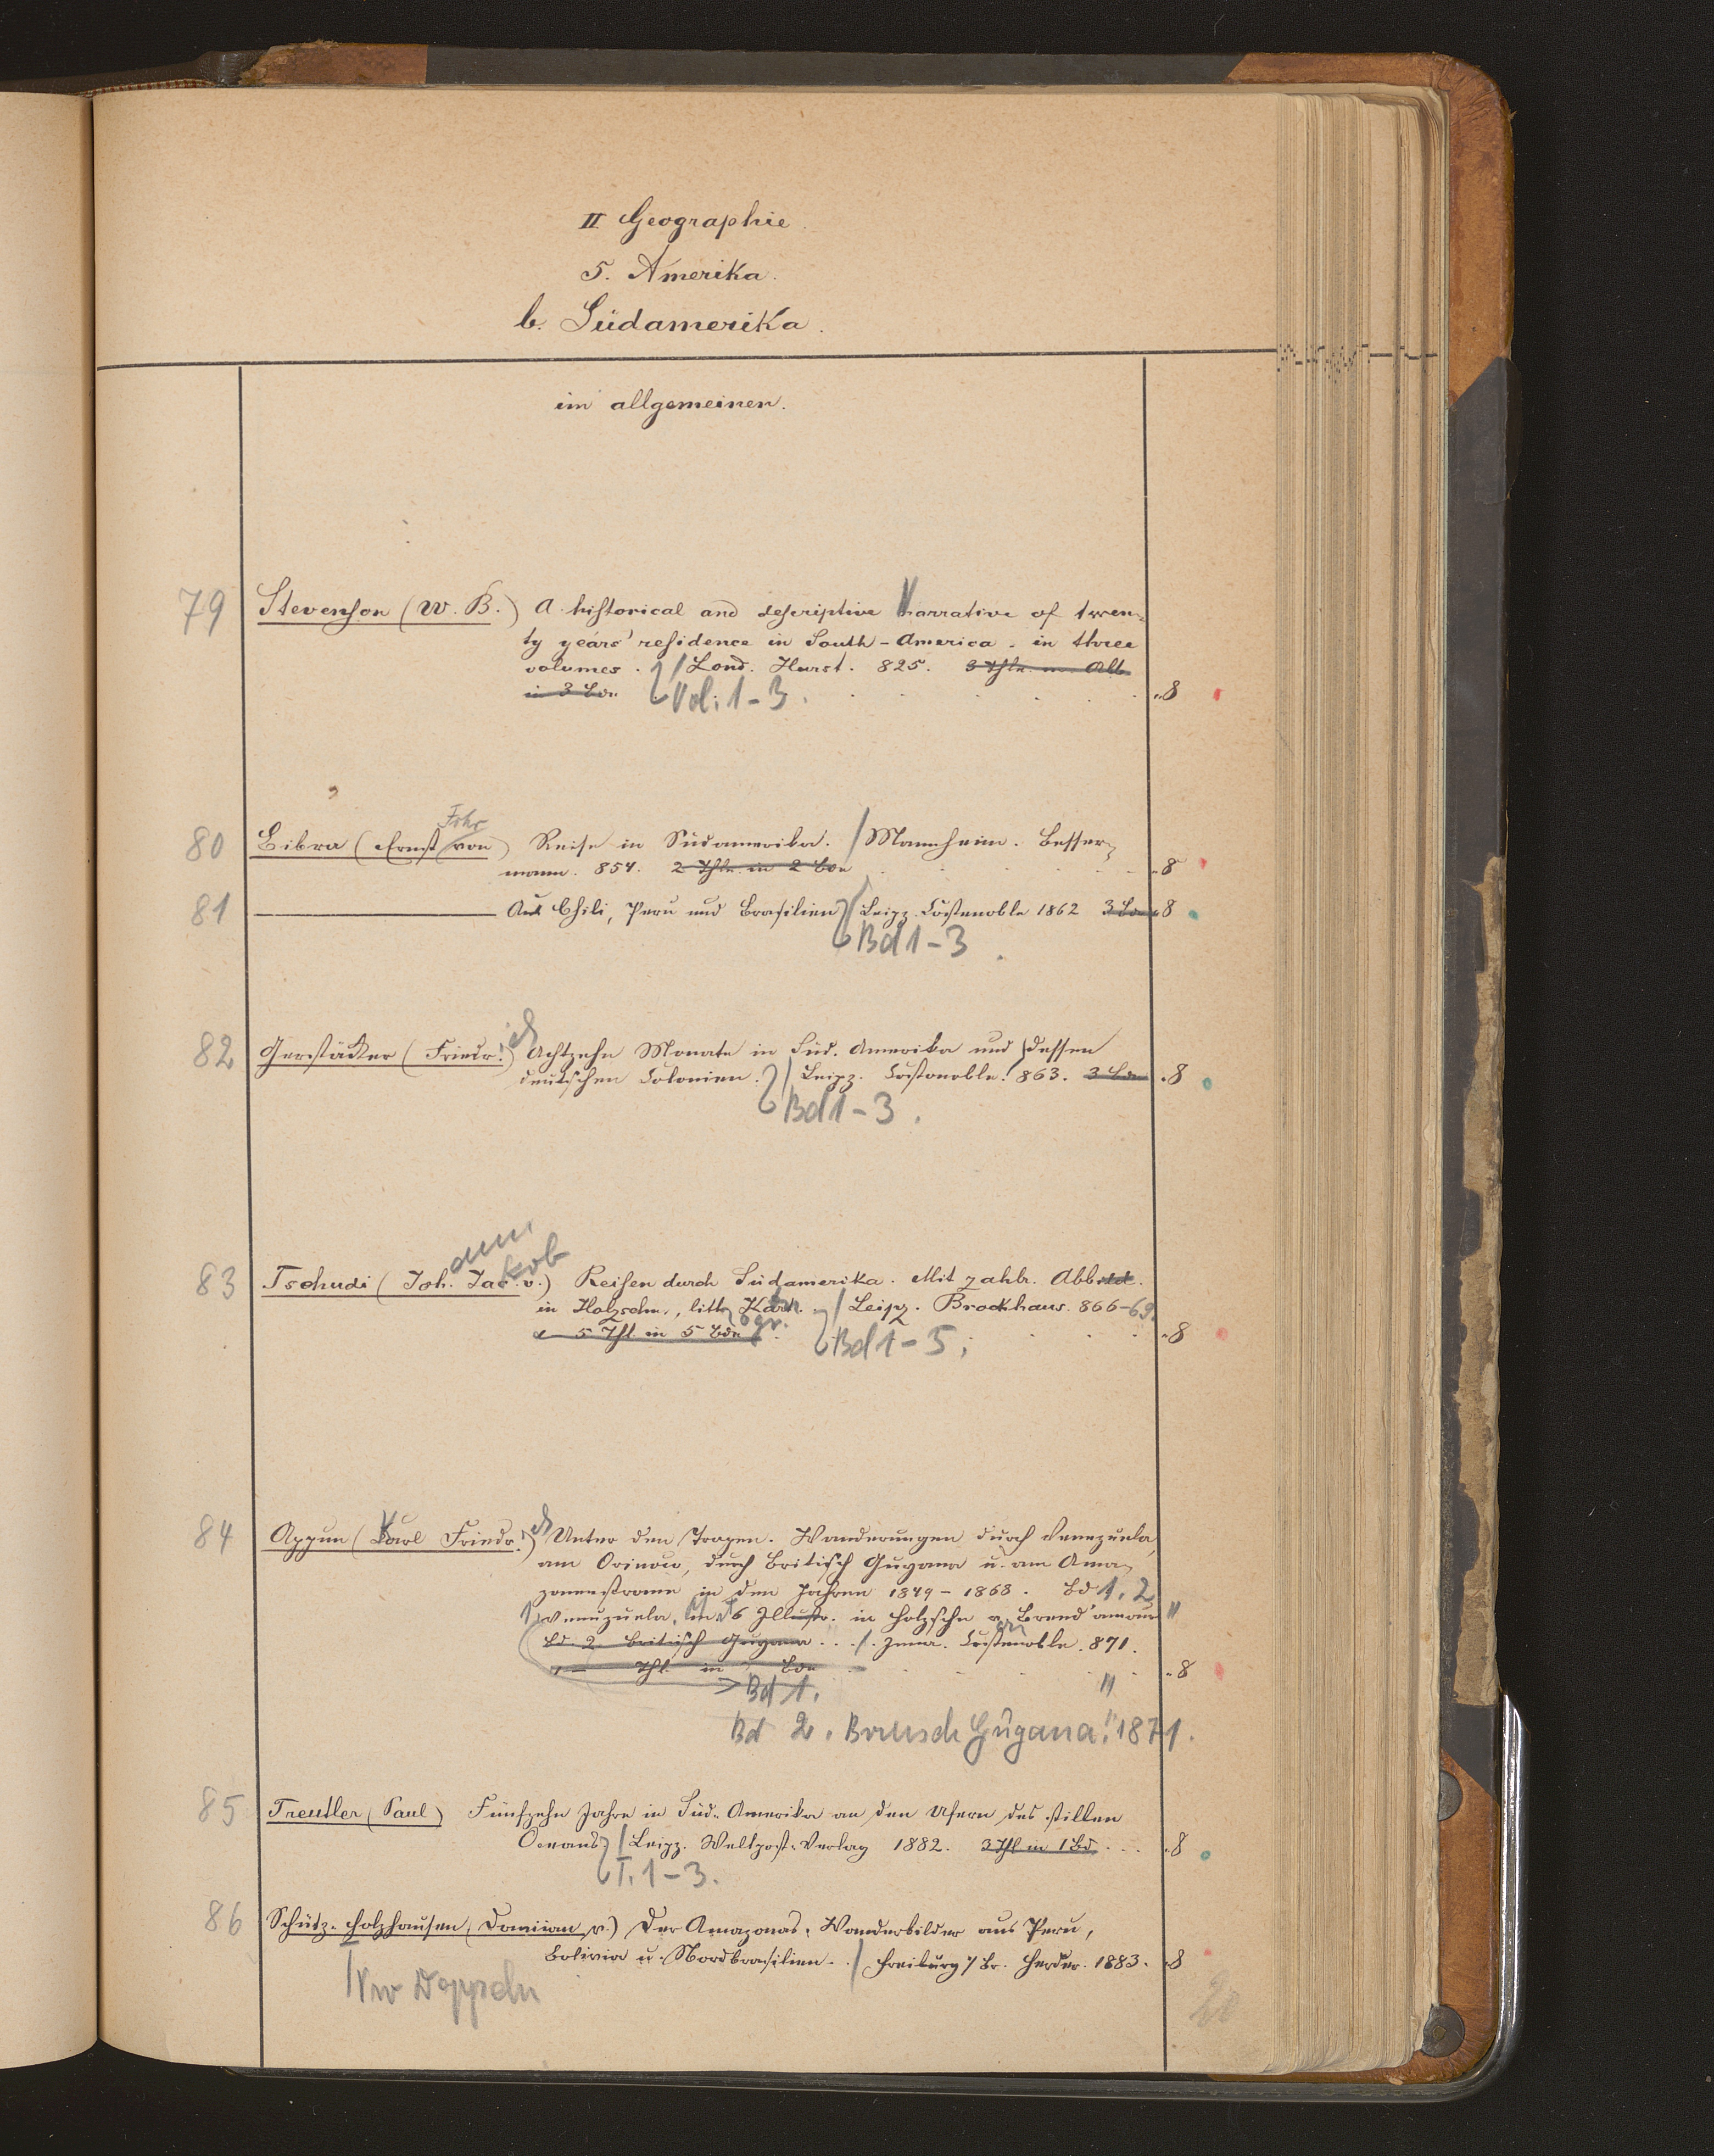 II Geographie.
5. Amerika.
b. Südamerika.
im allgemeinen.
79 Stevenson (W. B.) A historical and descriptive Narrative of twen-
ty years' residence in South-America. in three
volumes. / Lond. Hurst. 825. 3 Thle. Alb.
in 3 Bdn Vol. 1-3. 8
Frhr
80 Bibra (Ernst von) Reise in Südamerika. / Mannheim. Besser-
mann. 854. 2 Thle in 2 Bdn 8
81 Aus Chili, Peru und Brasilien / Leipz. Costenoble 1862 3 Bde 8
Bd 1-3
82 Gerstäcker (Friedr.ich) Achtzehn Monate in Süd-Amerika und dessen
deutschen Colonien. / Leipz. Costenoble. 863. 3 Bde 8
Bd 1-3.
ann
kob
83 Tschudi (Joh. Jac. v.) Reisen durch Südamerika. Mit zahlr. Abbild.
in Holzschn., lith. Kart. / Leipz. Brockhaus. 866-69.
5 Thl in 5 Bdn Bd 1-5. 8
84 Appun (Karl Friedr.ich) Unter den Tropen. Wanderungen durch Venezuela,
am Orinoco, durch Britisch Guyana u. am Ama-
zonenstrome in den Jahren 1849-1868. Bd 1. 2
Venezuela. m. 6 Illustr. in Holzschn
Bd. 2. Britisch Guyana. / Jena. Costenoble. 871.
Thl in Bdn 8
Bd 1.
Bd 2. Britisch Guyana. 1871.
85 Treutler (Paul) Fünfzehn Jahre in Süd-Amerika an den Ufern des stillen
Oceans / Leipz. Weltpost-Verlag 1882. 3 Thl in 1 Bd. 8
T. 1-3.
86 Schütz-Holzhausen (Damian v.) Der Amazonas. Wanderbilder aus Peru,
Bolivia u. Nordbrasilien. / Freiburg i/Br. Herder. 1883. 8